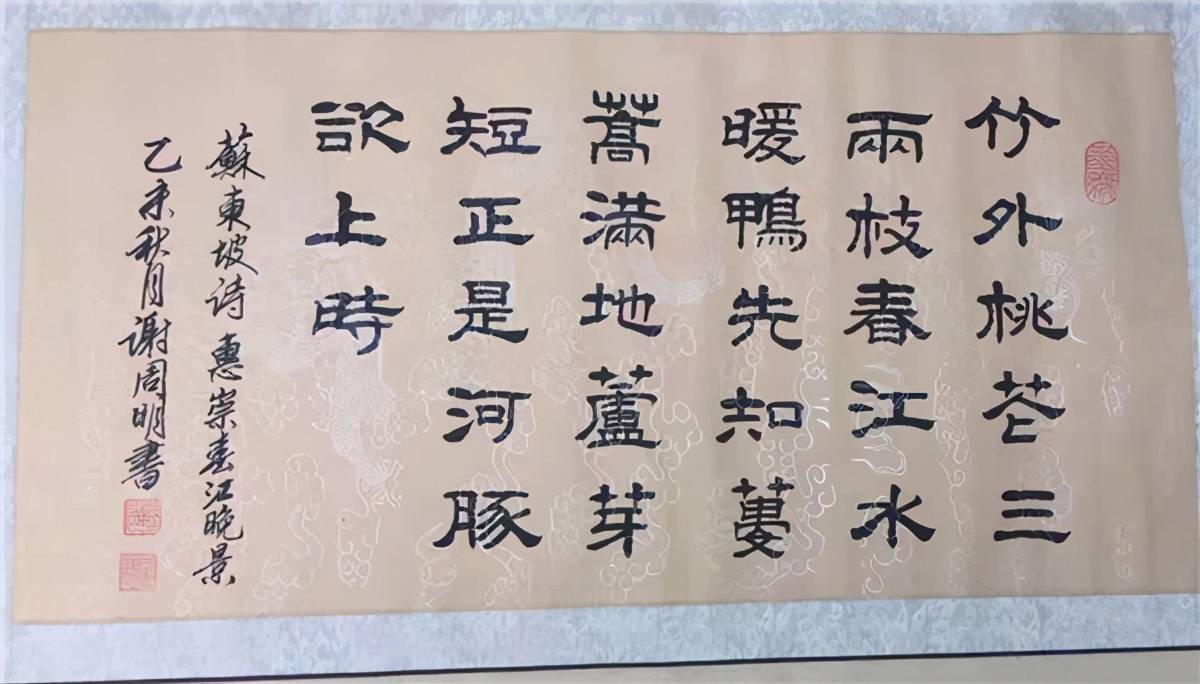 竹外桃花三
兩枝春江水
暖鴨先知蔞
蒿滿地蘆芽
短正是河豚
欲上時
蘇東坡詩 惠崇春江晚景
乙未秋月 謝周明書